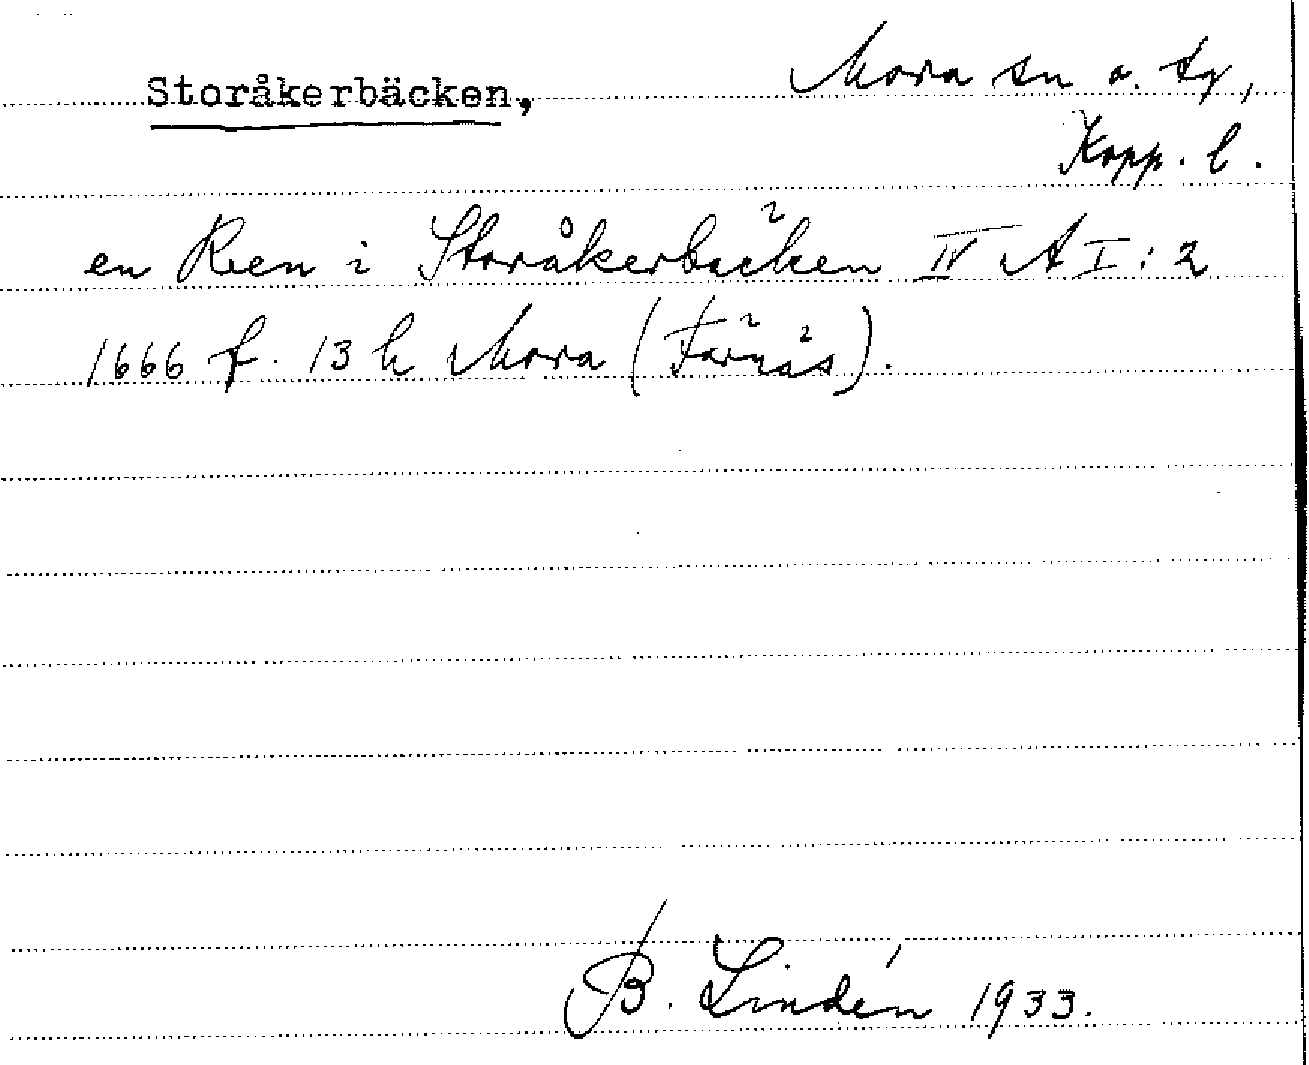 Storåkerbäcken,
Mora sn o. tg,
Kopp. l.
en Reen i Storåkerbäcken IV A I:2
1666 f. 13 h Mora (Färnäs).
B. Lindén 1933.